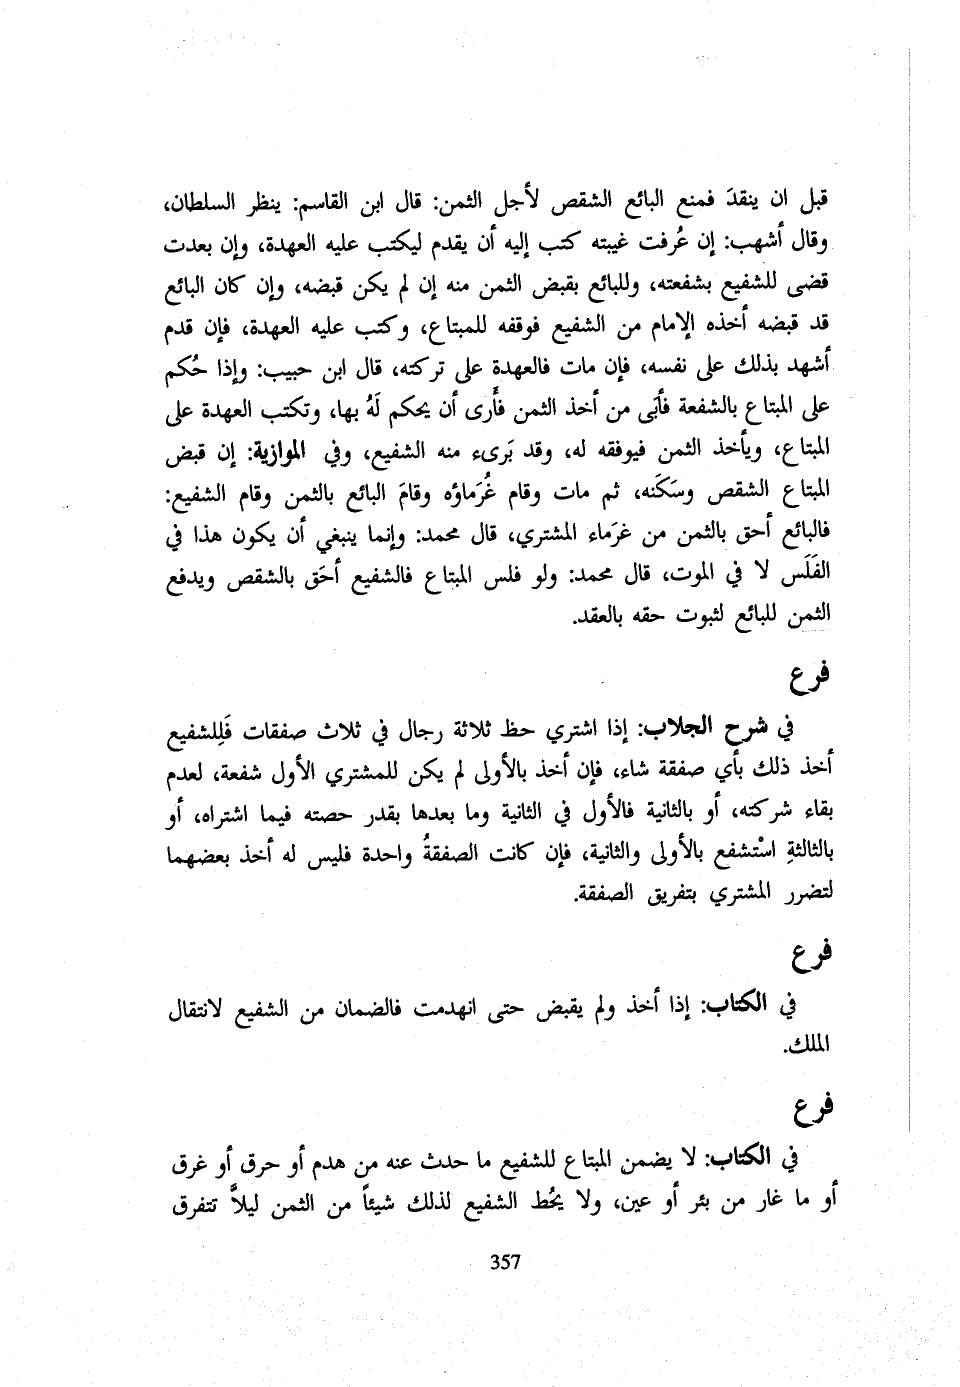 قبل ان ينقدَ فمنع البائع الشقص لأجل الثمن: قال ابن القاسم: ينظر السلطان،
وقال أشهب: إن عُرفت غيبته كتب إليه أن يقدم ليكتب عليه العهدة، وإن بعدت
قضى للشفيع بشفعته، وللبائع بقبض الثمن منه إن لم يكن قبضه، وإن كان البائع
قد قبضه أخذه الإمام من الشفيع فوقفه للمبتاع، وكتب عليه العهدة، فإن قدم
أشهد بذلك على نفسه، فإن مات فالعهدة على تركته، قال ابن حبيب: وإذا حُكم
على المبتاع بالشفعة فأبَى من أخذ الثمن فأَرى أن يحكم لَهُ بها، وتكتب العهدة على
المبتاع، ويأخذ الثمن فيوقفه له، وقد بَرىء منه الشفيع، وفي الموازية: إن قبض
المبتاع الشقص وسَكَنه، ثم مات وقام غُرَماؤه وقامَ البائع بالثمن وقام الشفيع:
فالبائع أحق بالثمن من غرَماء المشتري، قال محمد: وإنما ينبغي أن يكون هذا في
الفَلَس لا في الموت، قال محمد: ولو فلس المبتاع فالشفيع أحَق بالشقص ويدفع
الثمن للبائع لثبوت حقه بالعقد.
فرع
في شرح الجلاب: إذا اشتري حظ ثلاثة رجال في ثلاث صفقات فَلِلشفيع
أخذ ذلك بأي صفقة شاء، فإن أخذ بالأولى لم يكن للمشتري الأول شفعة، لعدم
بقاء شركته، أو بالثانية فالأول في الثانية وما بعدها بقدر حصته فيما اشتراه، أو
بالثالثةِ اسْتشفع بالأولى والثانية، فإن كانت الصفقةُ واحدة فليس له أخذ بعضهما
لتضرر المشتري بتفريق الصفقة.
فرع
في الكتاب: إذا أخذ ولم يقبض حتى انهدمت فالضمان من الشفيع لانتقال
الملك.
فرع
في الكتاب: لا يضمن المبتاع للشفيع ما حدث عنه من هدم أو حرق أو غرق
أو ما غار من بئر أو عين، ولا يحُط الشفيع لذلك شيئاً من الثمن ليلاَّ تتفرق
357